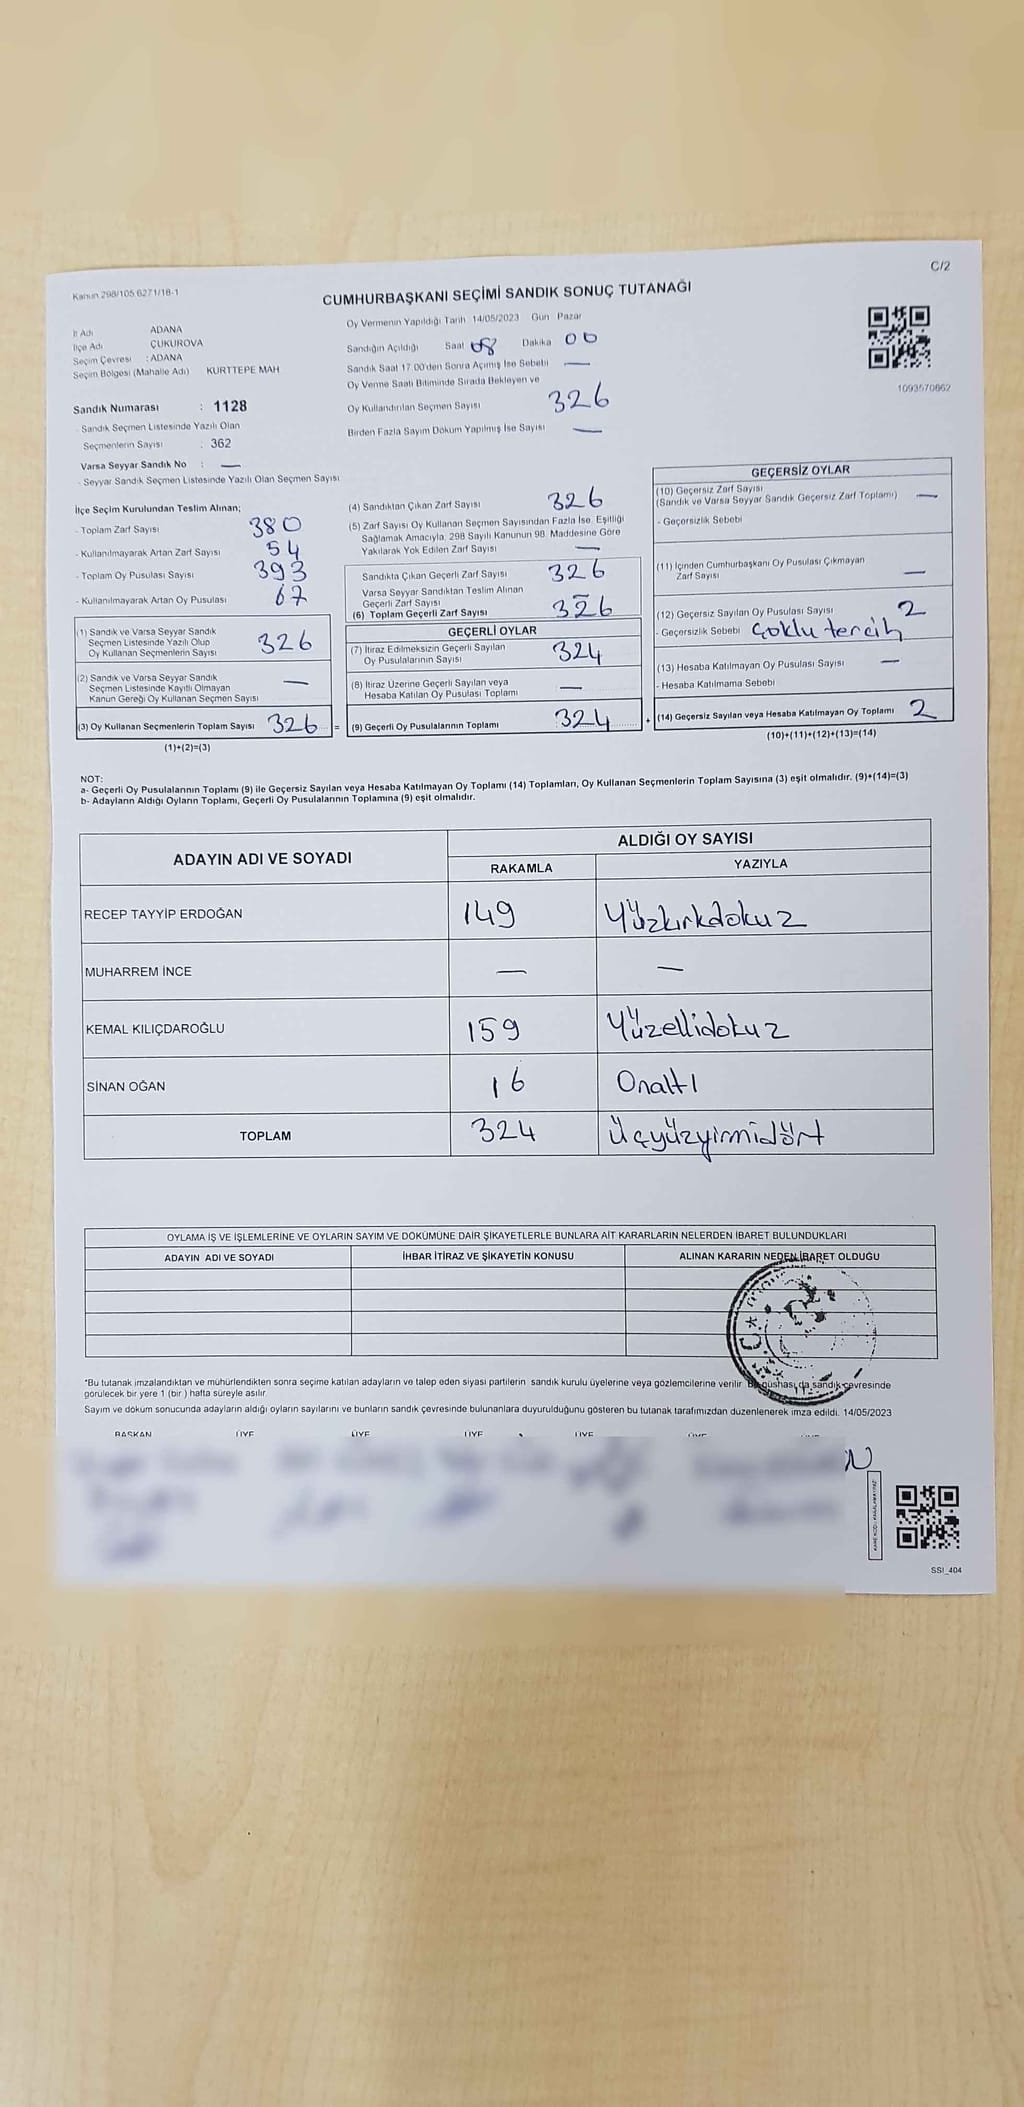 C/2
Kanun 298/105 6271/18-1
CUMHURBAŞKANI SEÇİMİ SANDIK SONUÇ TUTANAĞI
İl Adı ADANA
İlçe Adı ÇUKUROVA
Seçim Çevresi : ADANA
Seçim Bölgesi (Mahalle Adı) KURTTEPE MAH
Sandık Numarası : 1128
- Sandık Seçmen Listesinde Yazılı Olan
Seçmenlerin Sayısı : 362
Varsa Seyyar Sandık No : —
- Seyyar Sandık Seçmen Listesinde Yazılı Olan Seçmen Sayısı
Oy Vermenin Yapıldığı Tarih 14/05/2023 Gün Pazar
Sandığın Açıldığı Saat 08 Dakika 00
Sandık Saat 17.00'den Sonra Açımış İse Sebebi —
Oy Verme Saati Bitiminde Sırada Bekleyen ve
Oy Kullandırılan Seçmen Sayısı 326
Birden Fazla Sayım Döküm Yapılmış İse Sayısı —
1093570662
İlçe Seçim Kurulundan Teslim Alınan;
- Toplam Zarf Sayısı 380
- Kullanılmayarak Artan Zarf Sayısı 54
- Toplam Oy Pusulası Sayısı 393
- Kullanılmayarak Artan Oy Pusulası 67
(1) Sandık ve Varsa Seyyar Sandık
Seçmen Listesinde Yazılı Olup
Oy Kullanan Seçmenlerin Sayısı 326
(2) Sandık ve Varsa Seyyar Sandık
Seçmen Listesinde Kayıtlı Olmayan
Kanun Gereği Oy Kullanan Seçmen Sayısı —
(3) Oy Kullanan Seçmenlerin Toplam Sayısı 326 =
(1)+(2)=(3)
(4) Sandıktan Çıkan Zarf Sayısı 326
(5) Zarf Sayısı Oy Kullanan Seçmen Sayısından Fazla İse, Eşitliği
Sağlamak Amacıyla, 298 Sayılı Kanunun 98. Maddesine Göre
Yakılarak Yok Edilen Zarf Sayısı —
Sandıkta Çıkan Geçerli Zarf Sayısı 326
Varsa Seyyar Sandıktan Teslim Alınan
Geçerli Zarf Sayısı —
(6) Toplam Geçerli Zarf Sayısı 326
GEÇERLİ OYLAR
(7) İtiraz Edilmeksizin Geçerli Sayılan
Oy Pusulalarının Sayısı 324
(8) İtiraz Üzerine Geçerli Sayılan veya
Hesaba Katılan Oy Pusulası Toplamı —
(9) Geçerli Oy Pusulalarının Toplamı 324 +
GEÇERSİZ OYLAR
(10) Geçersiz Zarf Sayısı
(Sandık ve Varsa Seyyar Sandık Geçersiz Zarf Toplamı) —
- Geçersizlik Sebebi
(11) İçinden Cumhurbaşkanı Oy Pusulası Çıkmayan
Zarf Sayısı —
(12) Geçersiz Sayılan Oy Pusulası Sayısı 2
- Geçersizlik Sebebi Çoklu tercih
(13) Hesaba Katılmayan Oy Pusulası Sayısı —
- Hesaba Katılmama Sebebi
(14) Geçersiz Sayılan veya Hesaba Katılmayan Oy Toplamı 2
(10)+(11)+(12)+(13)=(14)
NOT:
a- Geçerli Oy Pusulalarının Toplamı (9) ile Geçersiz Sayılan veya Hesaba Katılmayan Oy Toplamı (14) Toplamları, Oy Kullanan Seçmenlerin Toplam Sayısına (3) eşit olmalıdır. (9)+(14)=(3)
b- Adayların Aldığı Oyların Toplamı, Geçerli Oy Pusulalarının Toplamına (9) eşit olmalıdır.
ADAYIN ADI VE SOYADI ALDIĞI OY SAYISI
RAKAMLA YAZIYLA
RECEP TAYYİP ERDOĞAN 149 Yüzkırkdokuz
MUHARREM İNCE — —
KEMAL KILIÇDAROĞLU 159 Yüzellidokuz
SİNAN OĞAN 16 Onaltı
TOPLAM 324 Üçyüzyirmidört
OYLAMA İŞ VE İŞLEMLERİNE VE OYLARIN SAYIM VE DÖKÜMÜNE DAİR ŞİKAYETLERLE BUNLARA AİT KARARLARIN NELERDEN İBARET BULUNDUKLARI
ADAYIN ADI VE SOYADI İHBAR İTİRAZ VE ŞİKAYETİN KONUSU ALINAN KARARIN NEDEN İBARET OLDUĞU
*Bu tutanak imzalandıktan ve mühürlendikten sonra seçime katılan adayların ve talep eden siyasi partilerin sandık kurulu üyelerine veya gözlemcilerine verilir. Bir nüshası da sandık çevresinde
görülecek bir yere 1 (bir ) hafta süreyle asılır.
Sayım ve döküm sonucunda adayların aldığı oyların sayılarını ve bunların sandık çevresinde bulunanlara duyurulduğunu gösteren bu tutanak tarafımızdan düzenlenerek imza edildi. 14/05/2023
BAŞKAN ÜYE ÜYE ÜYE ÜYE
SSI_404